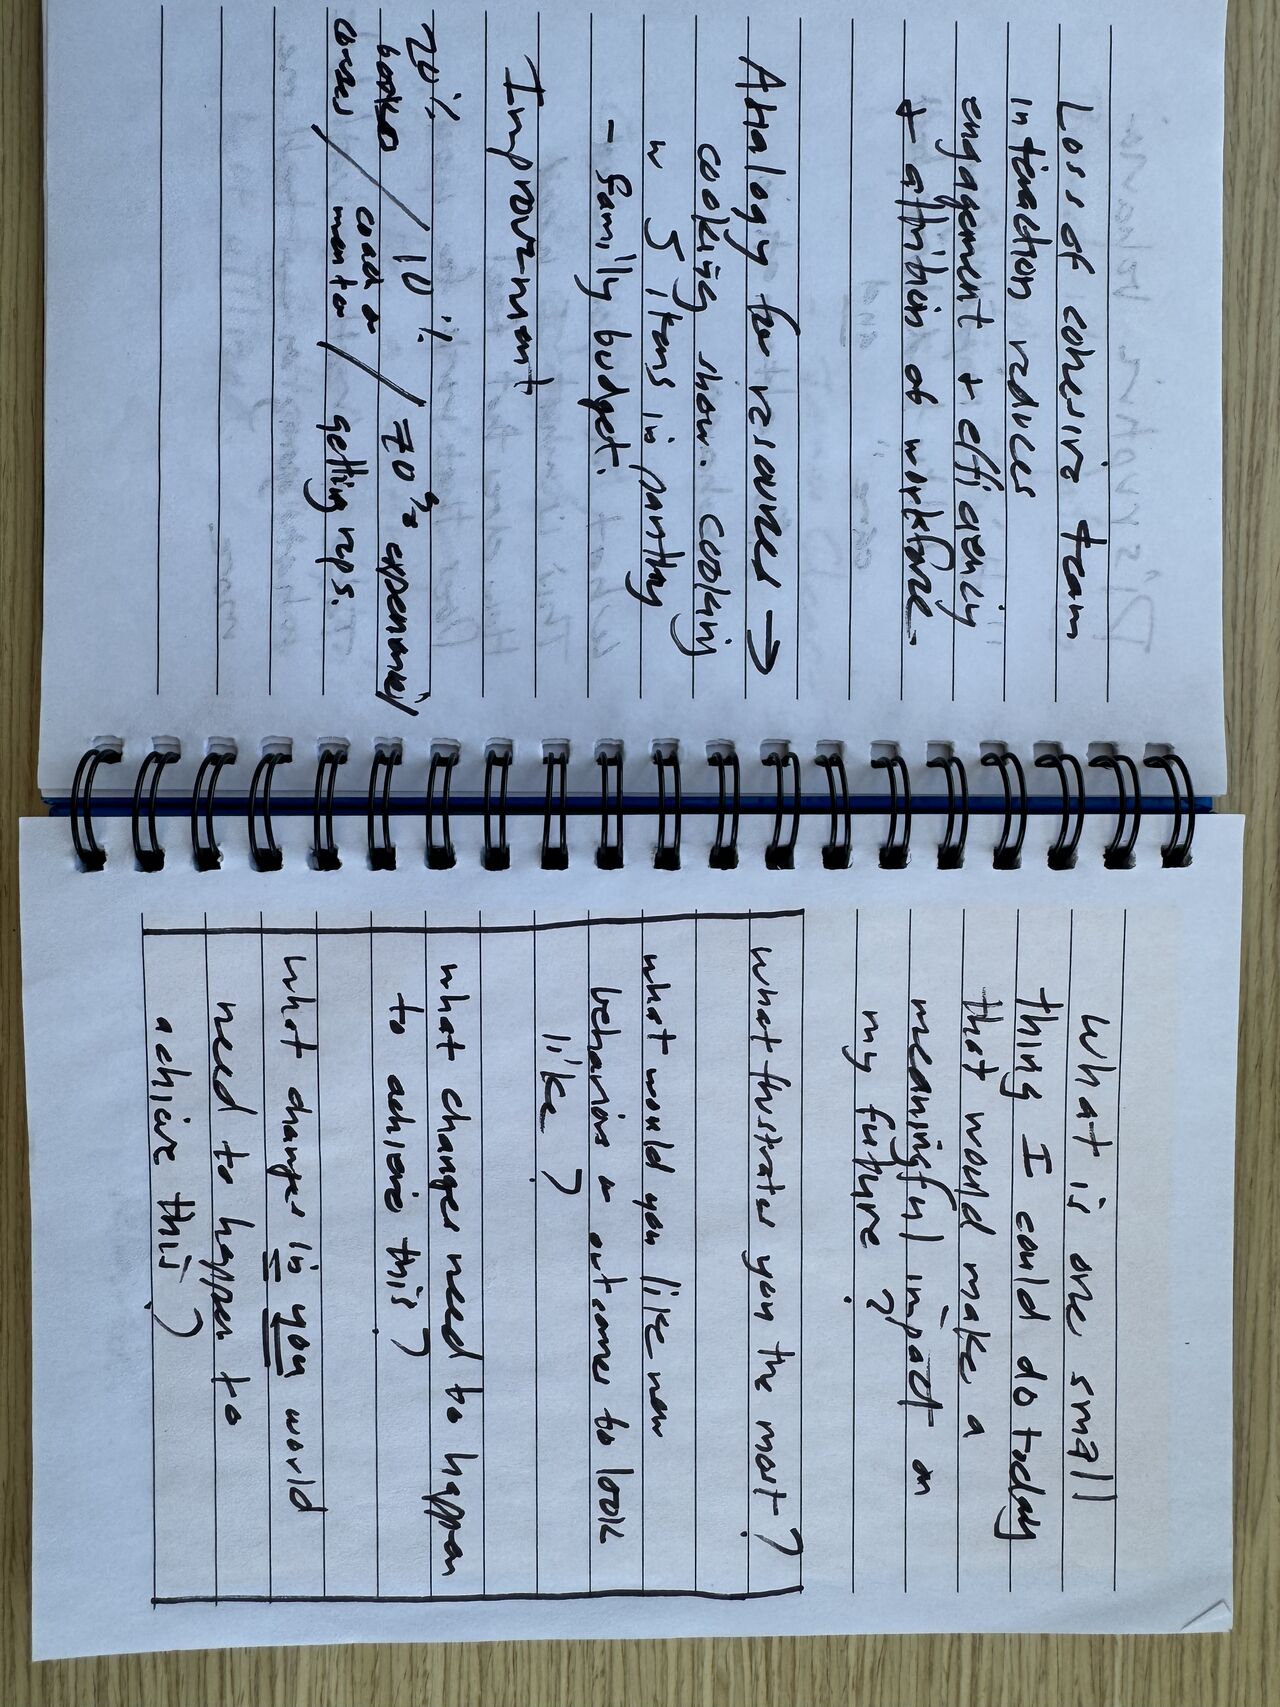 Loss of cohesive team
interaction reduces
engagement + efficiency
+ attrition of workforce.
Analogy for resources →
cooking show. cooking
w 5 items in pantry
- family budget.
Improvement
20% / 10% / 70% experience
books coach or
courses / mentor / getting reps.
What is one small
thing I could do today
that would make a
meaningful impact on
my future?
what frustrates you the most?
what would you like new
behaviors or outcomes to look
like?
what changes need to happen
to achieve this?
what changes in you would
need to happen to
achieve this?